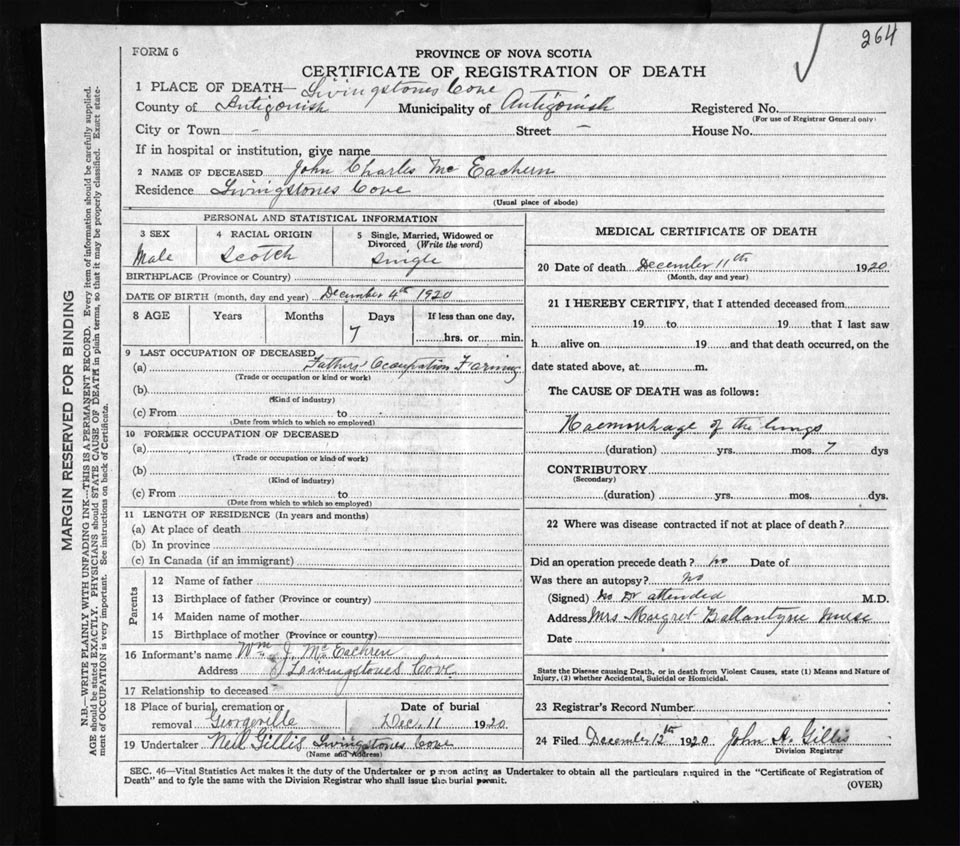 264
FORM 6
PROVINCE OF NOVA SCOTIA
CERTIFICATE OF REGISTRATION OF DEATH
1 PLACE OF DEATH— Livingstones Cove
County of Antigonish Municipality of Antigonish Registered No.
(For use of Registrar General only)
City or Town - Street - House No.
If in hospital or institution, give name
2 NAME OF DECEASED John Charles Mc Eachern
Residence Livingstones Cove
(Usual place of abode)
PERSONAL AND STATISTICAL INFORMATION
3 SEX 4 RACIAL ORIGIN 5 Single, Married, Widowed or Divorced (Write the word)
Male Scotch Single
BIRTHPLACE (Province or Country)
DATE OF BIRTH (month, day and year) December 4th 1920
8 AGE Years Months Days If less than one day,
7 hrs. or min.
9 LAST OCCUPATION OF DECEASED
(a) Fathers Occupation Farming
(Trade or occupation or kind or work)
(b)
(Kind of industry)
(c) From to
(Date from which to which so employed)
10 FORMER OCCUPATION OF DECEASED
(a)
(Trade or occupation or kind of work)
(b)
(Kind of industry)
(c) From to
(Date from which to which so employed)
11 LENGTH OF RESIDENCE (In years and months)
(a) At place of death
(b) In province
(c) In Canada (if an immigrant)
Parents
12 Name of father
13 Birthplace of father (Province or country)
14 Maiden name of mother
15 Birthplace of mother (Province or country)
16 Informant's name Wm J. McEachren
Address Livingstones Cove
17 Relationship to deceased
18 Place of burial, cremation or removal Georgeville Date of burial Dec. 11 1920
19 Undertaker Neil Gillis Livingstones Cove
(Name and Address)
MEDICAL CERTIFICATE OF DEATH
20 Date of death December 11th 1920
(Month, day and year)
21 I HEREBY CERTIFY, that I attended deceased from
19 to 19 that I last saw
h alive on 19 and that death occurred, on the
date stated above, at m.
The CAUSE OF DEATH was as follows:
Haemorrhage of the lungs
(duration) yrs. mos. 7 dys
CONTRIBUTORY
(Secondary)
(duration) yrs. mos. dys.
22 Where was disease contracted if not at place of death?
Did an operation precede death? No Date of
Was there an autopsy? No
(Signed) No Dr attended M.D.
Address Mrs Margret Ballantyne nurse
Date
State the Disease causing Death, or in death from Violent Causes, state (1) Means and Nature of
Injury, (2) whether Accidental, Suicidal or Homicidal.
23 Registrar's Record Number
24 Filed December 12th 1920 John H. Gillis
Division Registrar
SEC. 46—Vital Statistics Act makes it the duty of the Undertaker or person acting as Undertaker to obtain all the particulars required in the "Certificate of Registration of
Death" and to fyle the same with the Division Registrar who shall issue the burial permit.
(OVER)
MARGIN RESERVED FOR BINDING
N.B.—WRITE PLAINLY WITH UNFADING INK—THIS IS A PERMANENT RECORD. Every item of information should be carefully supplied.
AGE should be stated EXACTLY. PHYSICIANS should STATE CAUSE OF DEATH in plain terms, so that it may be properly classified. Exact state-
ment of OCCUPATION is very important. See instructions on back of Certificate.